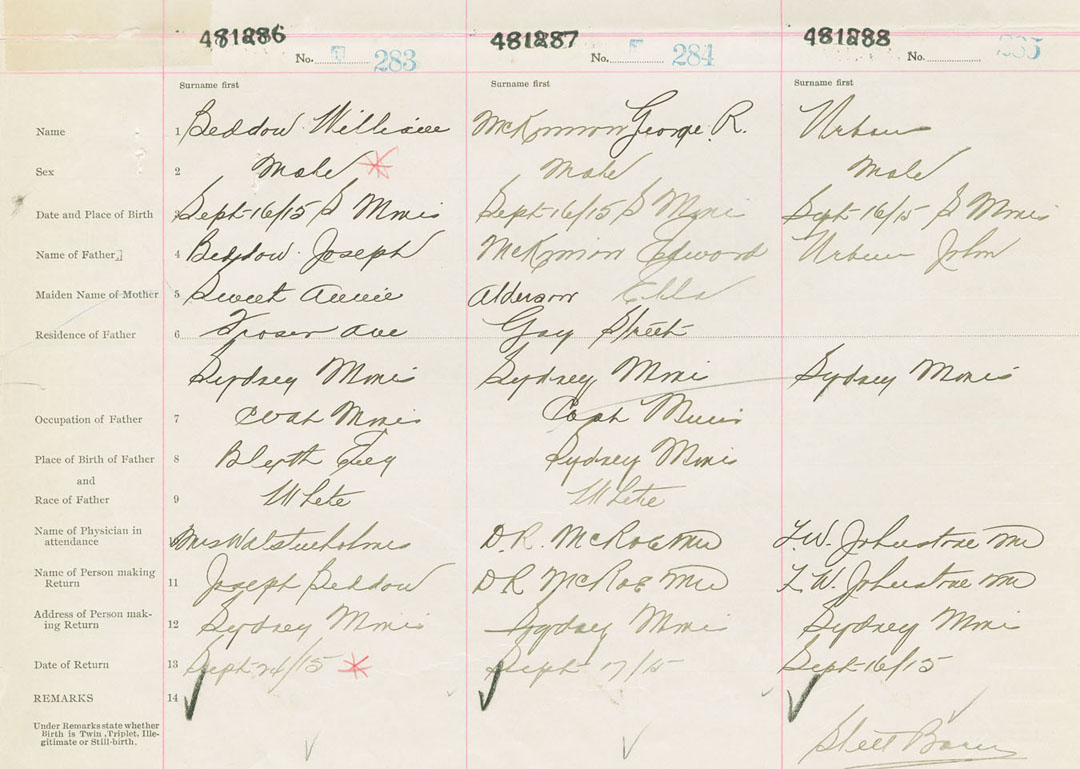 481286 481287 481288
No. 283 No. 284 No. 285
Surname first Surname first Surname first
Name 1 Beddow William McKinnon George R. Urban
Sex 2 Male Male Male
Date and Place of Birth 3 Sept 16/15 S Mines Sept 16/15 S Mines Sept 16/15 S Mines
Name of Father 4 Beddow Joseph McKinnon Edward Urban John
Maiden Name of Mother 5 Sweet Annie Alderson Ella
Residence of Father 6 Fraser Ave Gay Street
Sydney Mines Sydney Mines Sydney Mines
Occupation of Father 7 Coal Miner Miner
Place of Birth of Father 8 Blyth Eng Sydney Mines
and
Race of Father 9 White White
Name of Physician in
attendance Mrs D.R. McRae MD L.W. Johnstone MD
Name of Person making
Return 11 Joseph Beddow D R McRae MD L W. Johnstone MD
Address of Person mak-
ing Return 12 Sydney Mines Sydney Mines Sydney Mines
Date of Return 13 Sept 26/15 Sept 17/15 Sept 16/15
REMARKS 14
Under Remarks state whether
Birth is Twin, Triplet, Ille-
gitimate or Still-birth. Still Born